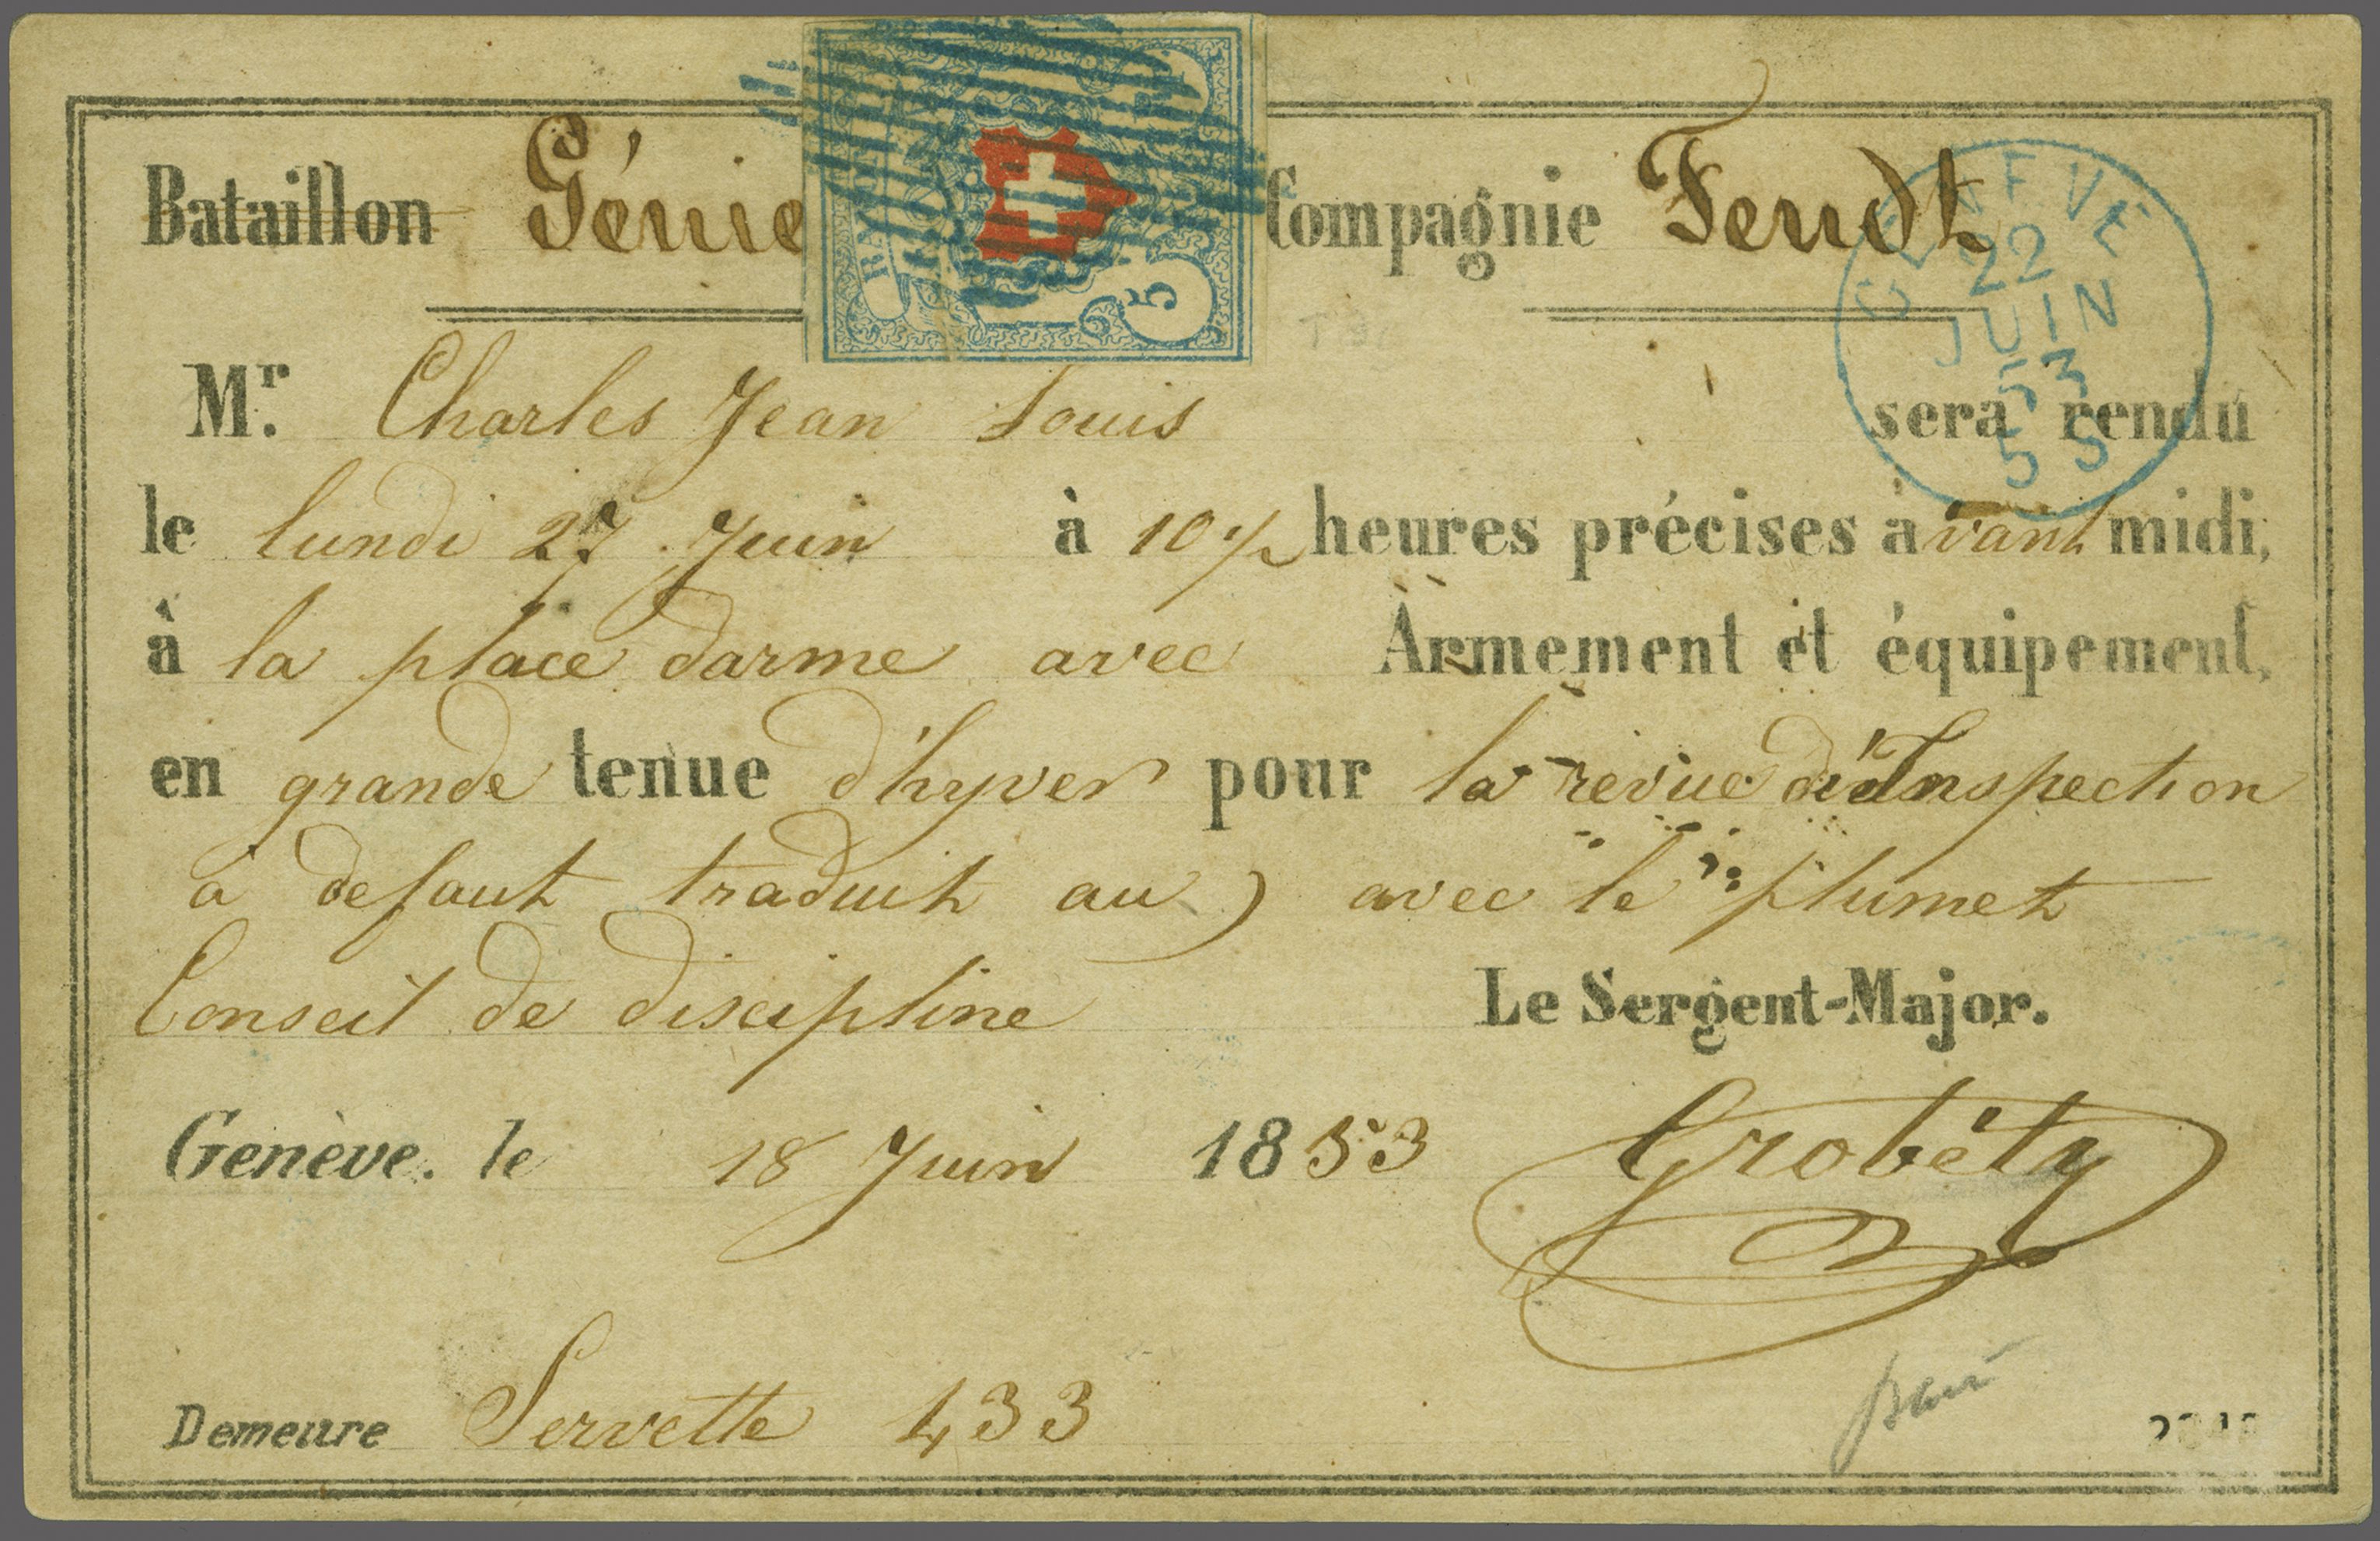 Bataillon Génie Compagnie Fendt
RA
5
GENEVE
22
JUIN
53
5 S
Mr. Charles Jean Louis sera rendu
le lundi 27 Juin à 10 1/2 heures précises avant midi,
à la place darme avec Armement et équipement,
en grande tenue d'hyver pour la revue d'Inspection
a defaut traduit au ) avec le plumet
Conseil de discipline
Le Sergent-Major.
Genève. le 18 Juin 1853 Grobéty
Demeure Servette 433